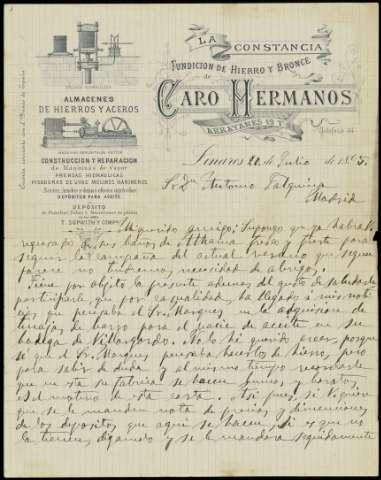 LA CONSTANCIA
FUNDICION DE HIERRO Y BRONCE
de
CARO HERMANOS
ARRAYANES
ALMACENES
DE HIERROS Y ACEROS
CONSTRUCCION Y REPARACION
de Máquinas de vapor
PRENSAS HIDRAULICAS
PISADORAS DE UVAS MOLINOS HARINEROS
DEPÓSITOS PARA ACEITE
DEPÓSITO
Linares 20 de Julio de 189
Sr. Dn. Antonio
Madrid
Mi querido amigo: Supongo que ya habrá
regresado de los baños de Alhama fresco y fuerte para
seguir la campaña del actual verano que segun
parece no tendremos necesidad de abrigos.
Tiene por objeto la presente ademas del gusto de saludarle
participarle que por casualidad, ha llegado á mis noti-
cias que pensaba el Sr. Marques, en la adquisicion de
tinajas de barro para el jugo de aceite en su
bodega de Villargordo. No lo hé querido creer, porque
sé que el Sr. Marques pensaba hacerlos de hierro, pero
para salir de duda y al mismo tiempo recordarle
que en esta su fabrica se hacen buenos y baratos
es el motivo de esta carta. Asi pues, si quieren
que se le mande nota de precios y dimensiones
de los depositos que aqui se hacen, si es que no
la tienen, digamelo y se le mandará seguidamente